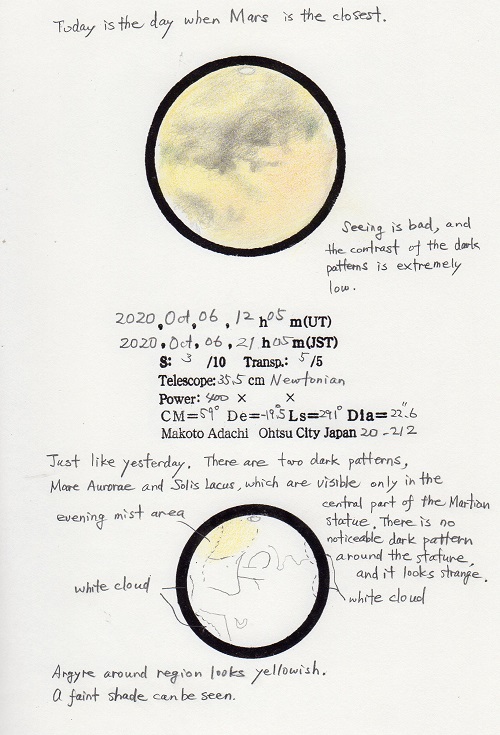 Today is the day when Mars is the closest.
Seeing is bad, and
the contrast of the dark
patterns is extremely
low.
2020, Oct, 06, 12 h 05 m(UT)
2020, Oct, 06, 21 h 05 m(JST)
S: 3 /10 Transp.: 5/5
Telescope: 35.5 cm Newtonian
Power: 400 × ×
CM=59° De=-19.°5 Ls=291° Dia=22."6
Makoto Adachi Ohtsu City Japan 20-212
Just like yesterday. There are two dark patterns,
Mare Aurorae and Solis Lacus, which are visible only in the
central part of the Martian
statue. There is no
noticeable dark pattern
around the stature,
and it looks strange.
evening mist area
white cloud
white cloud
Argyre around region looks yellowish.
A faint shade can be seen.